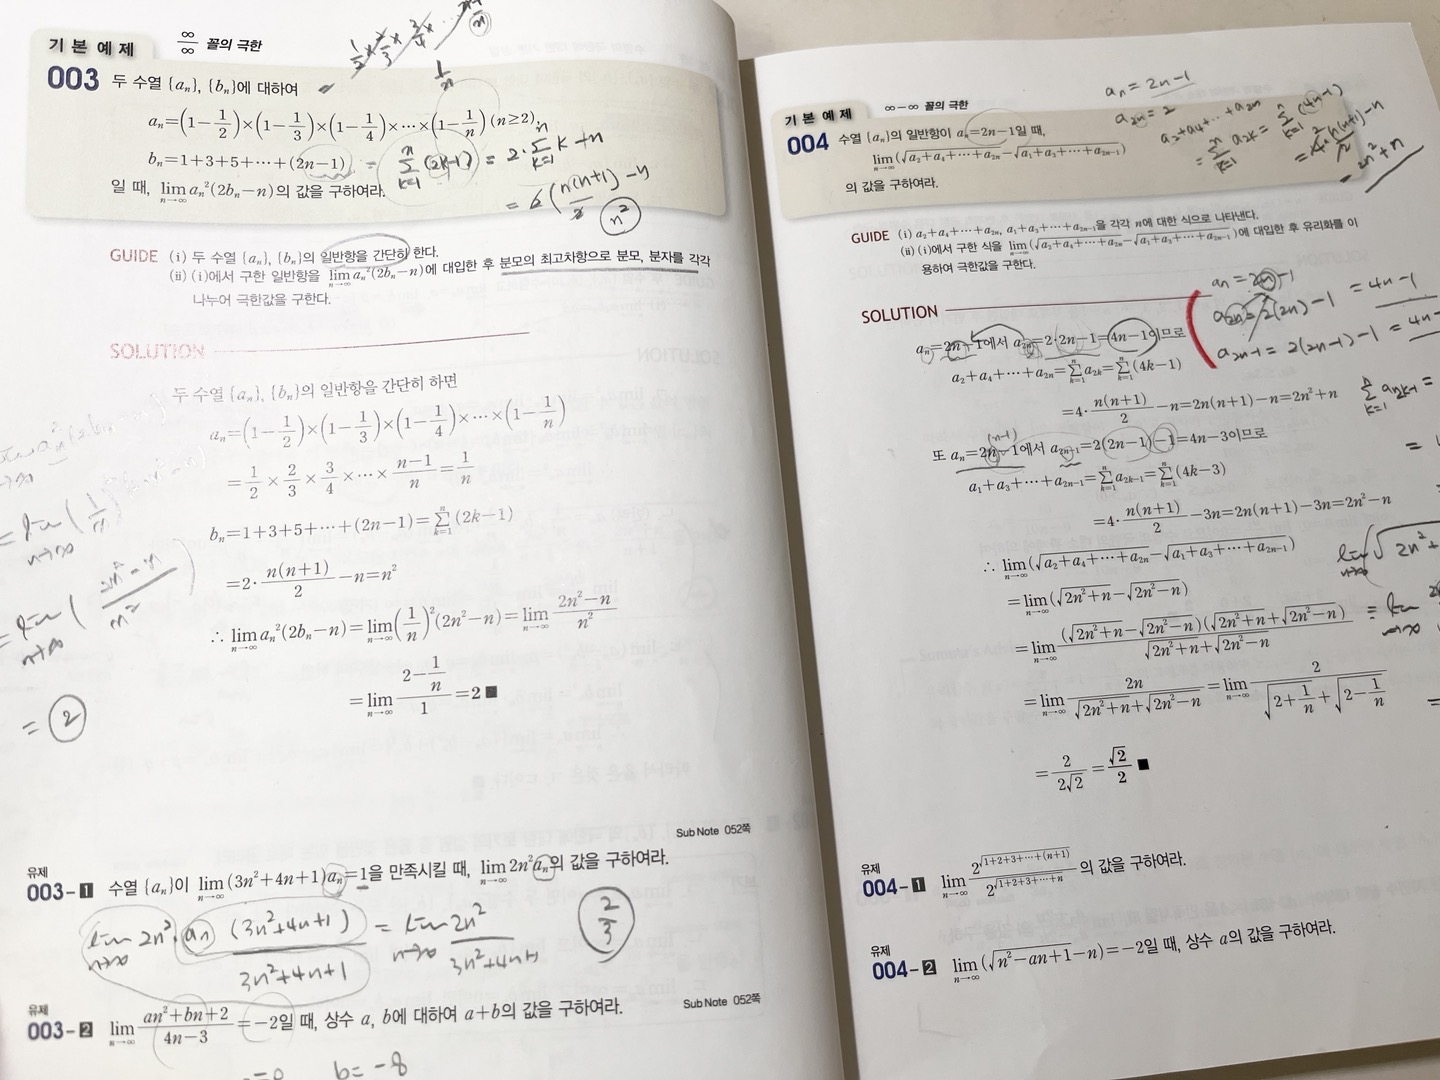 기본 예제 ∞/∞ 꼴의 극한
003 두 수열 {aₙ}, {bₙ}에 대하여
aₙ=(1-1/2)×(1-1/3)×(1-1/4)×⋯×(1-1/n) (n≥2),
bₙ=1+3+5+⋯+(2n-1) = Σₖ₌₁ⁿ(2k-1) = 2·Σₖ₌₁ⁿ k + n
일 때, lim(n→∞) aₙ²(2bₙ-n)의 값을 구하여라.
n²
GUIDE (i) 두 수열 {aₙ}, {bₙ}의 일반항을 간단히 한다.
(ii) (i)에서 구한 일반항을 lim(n→∞) aₙ²(2bₙ-n)에 대입한 후 분모의 최고차항으로 분모, 분자를 각각
나누어 극한값을 구한다.
SOLUTION
두 수열 {aₙ}, {bₙ}의 일반항을 간단히 하면
aₙ=(1-1/2)×(1-1/3)×(1-1/4)×⋯×(1-1/n)
=1/2×2/3×3/4×⋯×(n-1)/n=1/n
bₙ=1+3+5+⋯+(2n-1)=Σₖ₌₁ⁿ(2k-1)
=2·n(n+1)/2-n=n²
∴ lim(n→∞) aₙ²(2bₙ-n)=lim(n→∞)(1/n)²(2n²-n)=lim(n→∞)(2n²-n)/n²
=lim(n→∞)(2-1/n)/1=2■
= 2
Sub Note 052쪽
유제
003-1 수열 {aₙ}이 lim(n→∞)(3n²+4n+1)aₙ=1을 만족시킬 때, lim(n→∞)2n²aₙ의 값을 구하여라.
lim(n→∞) 2n²·aₙ (3n²+4n+1)/(3n²+4n+1) = lim(n→∞) 2n²/(3n²+4n+1) 2/3
Sub Note 052쪽
유제
003-2 lim(n→∞)(an²+bn+2)/(4n-3)=-2일 때, 상수 a, b에 대하여 a+b의 값을 구하여라.
b=-8
기본 예제 ∞-∞ 꼴의 극한
aₙ=2n-1
004 수열 {aₙ}의 일반항이 aₙ=2n-1일 때,
lim(n→∞)(√(a₂+a₄+⋯+a₂ₙ)-√(a₁+a₃+⋯+a₂ₙ₋₁))
의 값을 구하여라.
a₂+a₄+⋯+a₂ₙ
=Σₖ₌₁ⁿ a₂ₖ=Σₖ₌₁ⁿ(4k-1)
2n²+n
GUIDE (i) a₂+a₄+⋯+a₂ₙ, a₁+a₃+⋯+a₂ₙ₋₁을 각각 n에 대한 식으로 나타낸다.
(ii) (i)에서 구한 식을 lim(n→∞)(√(a₂+a₄+⋯+a₂ₙ)-√(a₁+a₃+⋯+a₂ₙ₋₁))에 대입한 후 유리화를 이
용하여 극한값을 구한다.
SOLUTION
aₙ=2n-1
a₂ₙ=2(2n)-1 =4n-1
a₂ₙ₋₁=2(2n-1)-1
aₙ=2n-1에서 a₂ₙ=2·2n-1=4n-1이므로
a₂+a₄+⋯+a₂ₙ=Σₖ₌₁ⁿa₂ₖ=Σₖ₌₁ⁿ(4k-1)
=4·n(n+1)/2-n=2n(n+1)-n=2n²+n
(n-1)
또 aₙ=2n-1에서 a₂ₙ₋₁=2(2n-1)-1=4n-3이므로
a₁+a₃+⋯+a₂ₙ₋₁=Σₖ₌₁ⁿa₂ₖ₋₁=Σₖ₌₁ⁿ(4k-3)
=4·n(n+1)/2-3n=2n(n+1)-3n=2n²-n
∴ lim(n→∞)(√(a₂+a₄+⋯+a₂ₙ)-√(a₁+a₃+⋯+a₂ₙ₋₁))
=lim(n→∞)(√(2n²+n)-√(2n²-n))
=lim(n→∞)(√(2n²+n)-√(2n²-n))(√(2n²+n)+√(2n²-n))/(√(2n²+n)+√(2n²-n))
=lim(n→∞)2n/(√(2n²+n)+√(2n²-n))=lim(n→∞)2/(√(2+1/n)+√(2-1/n))
=2/(2√2)=√2/2■
유제
004-1 lim(n→∞) 2^√(1+2+3+⋯+(n+1))/2^√(1+2+3+⋯+n)의 값을 구하여라.
유제
004-2 lim(n→∞)(√(n²-an+1)-n)=-2일 때, 상수 a의 값을 구하여라.